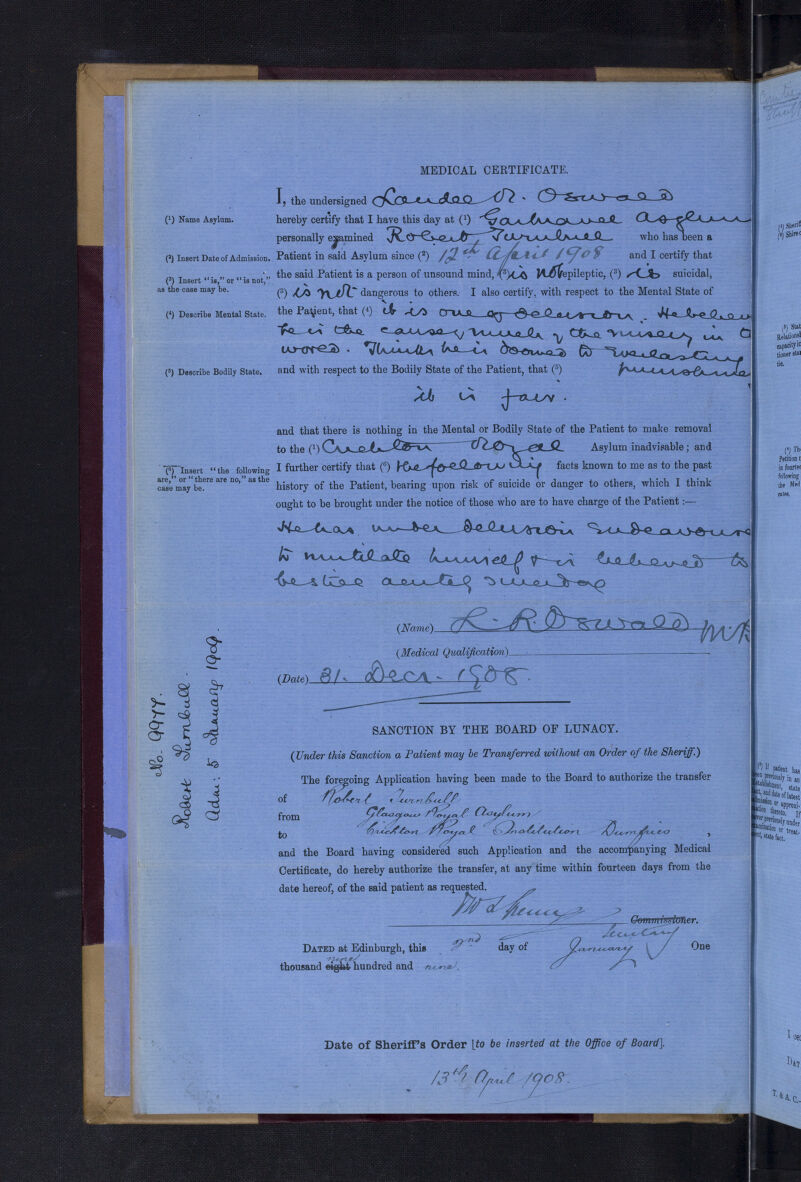 MEDICAL CERTIFICATE.
I, the undersigned Landel R. Oswald
(¹) Name Asylum.
hereby certify that I have this day at (¹) Gartnavel Asylum
personally examined Robert Turnbull who has been a
(²) Insert Date of Admission.
Patient in said Asylum since (²) 12th April 1908 and I certify that
(³) Insert "is," or "is not," as the case may be.
the said Patient is a person of unsound mind, (³) is not epileptic, (³) is suicidal,
(³) is not dangerous to others. I also certify, with respect to the Mental State of
(⁴) Describe Mental State.
the Patient, that (⁴) it is one of delusion. He believes
he is the cause of much of the misery in
world. Thinks he is doomed to everlasting
(⁵) Describe Bodily State.
and with respect to the Bodily State of the Patient, that (⁵) punishme
it is fair.
and that there is nothing in the Mental or Bodily State of the Patient to make removal
to the (¹) Crichton Royal Asylum inadvisable; and
(⁶) Insert "the following are," or "there are no," as the case may be.
I further certify that (⁶) the following facts known to me as to the past
history of the Patient, bearing upon risk of suicide or danger to others, which I think
ought to be brought under the notice of those who are to have charge of the Patient:—
He has under delusion endeavoured
to mutilate himself & is believed to
be still acutely suicidal
(Name) L. R. Oswald M.B
(Medical Qualification)
(Date) 31. Decr. 1908.
No. 9977.
Robert Turnbull.
Adm: 5 January 1909.
SANCTION BY THE BOARD OF LUNACY.
(Under this Sanction a Patient may be Transferred without an Order of the Sheriff.)
The foregoing Application having been made to the Board to authorize the transfer
of Robert Turnbull
from Glasgow Royal Asylum
to Crichton Royal Institution Dumfries,
and the Board having considered such Application and the accompanying Medical
Certificate, do hereby authorize the transfer, at any time within fourteen days from the
date hereof, of the said patient as requested.
Commissioner.
Secretary
DATED at Edinburgh, this 2nd day of January One
nine
thousand eight hundred and nine.
Date of Sheriff's Order [to be inserted at the Office of Board].
13th April 1908.